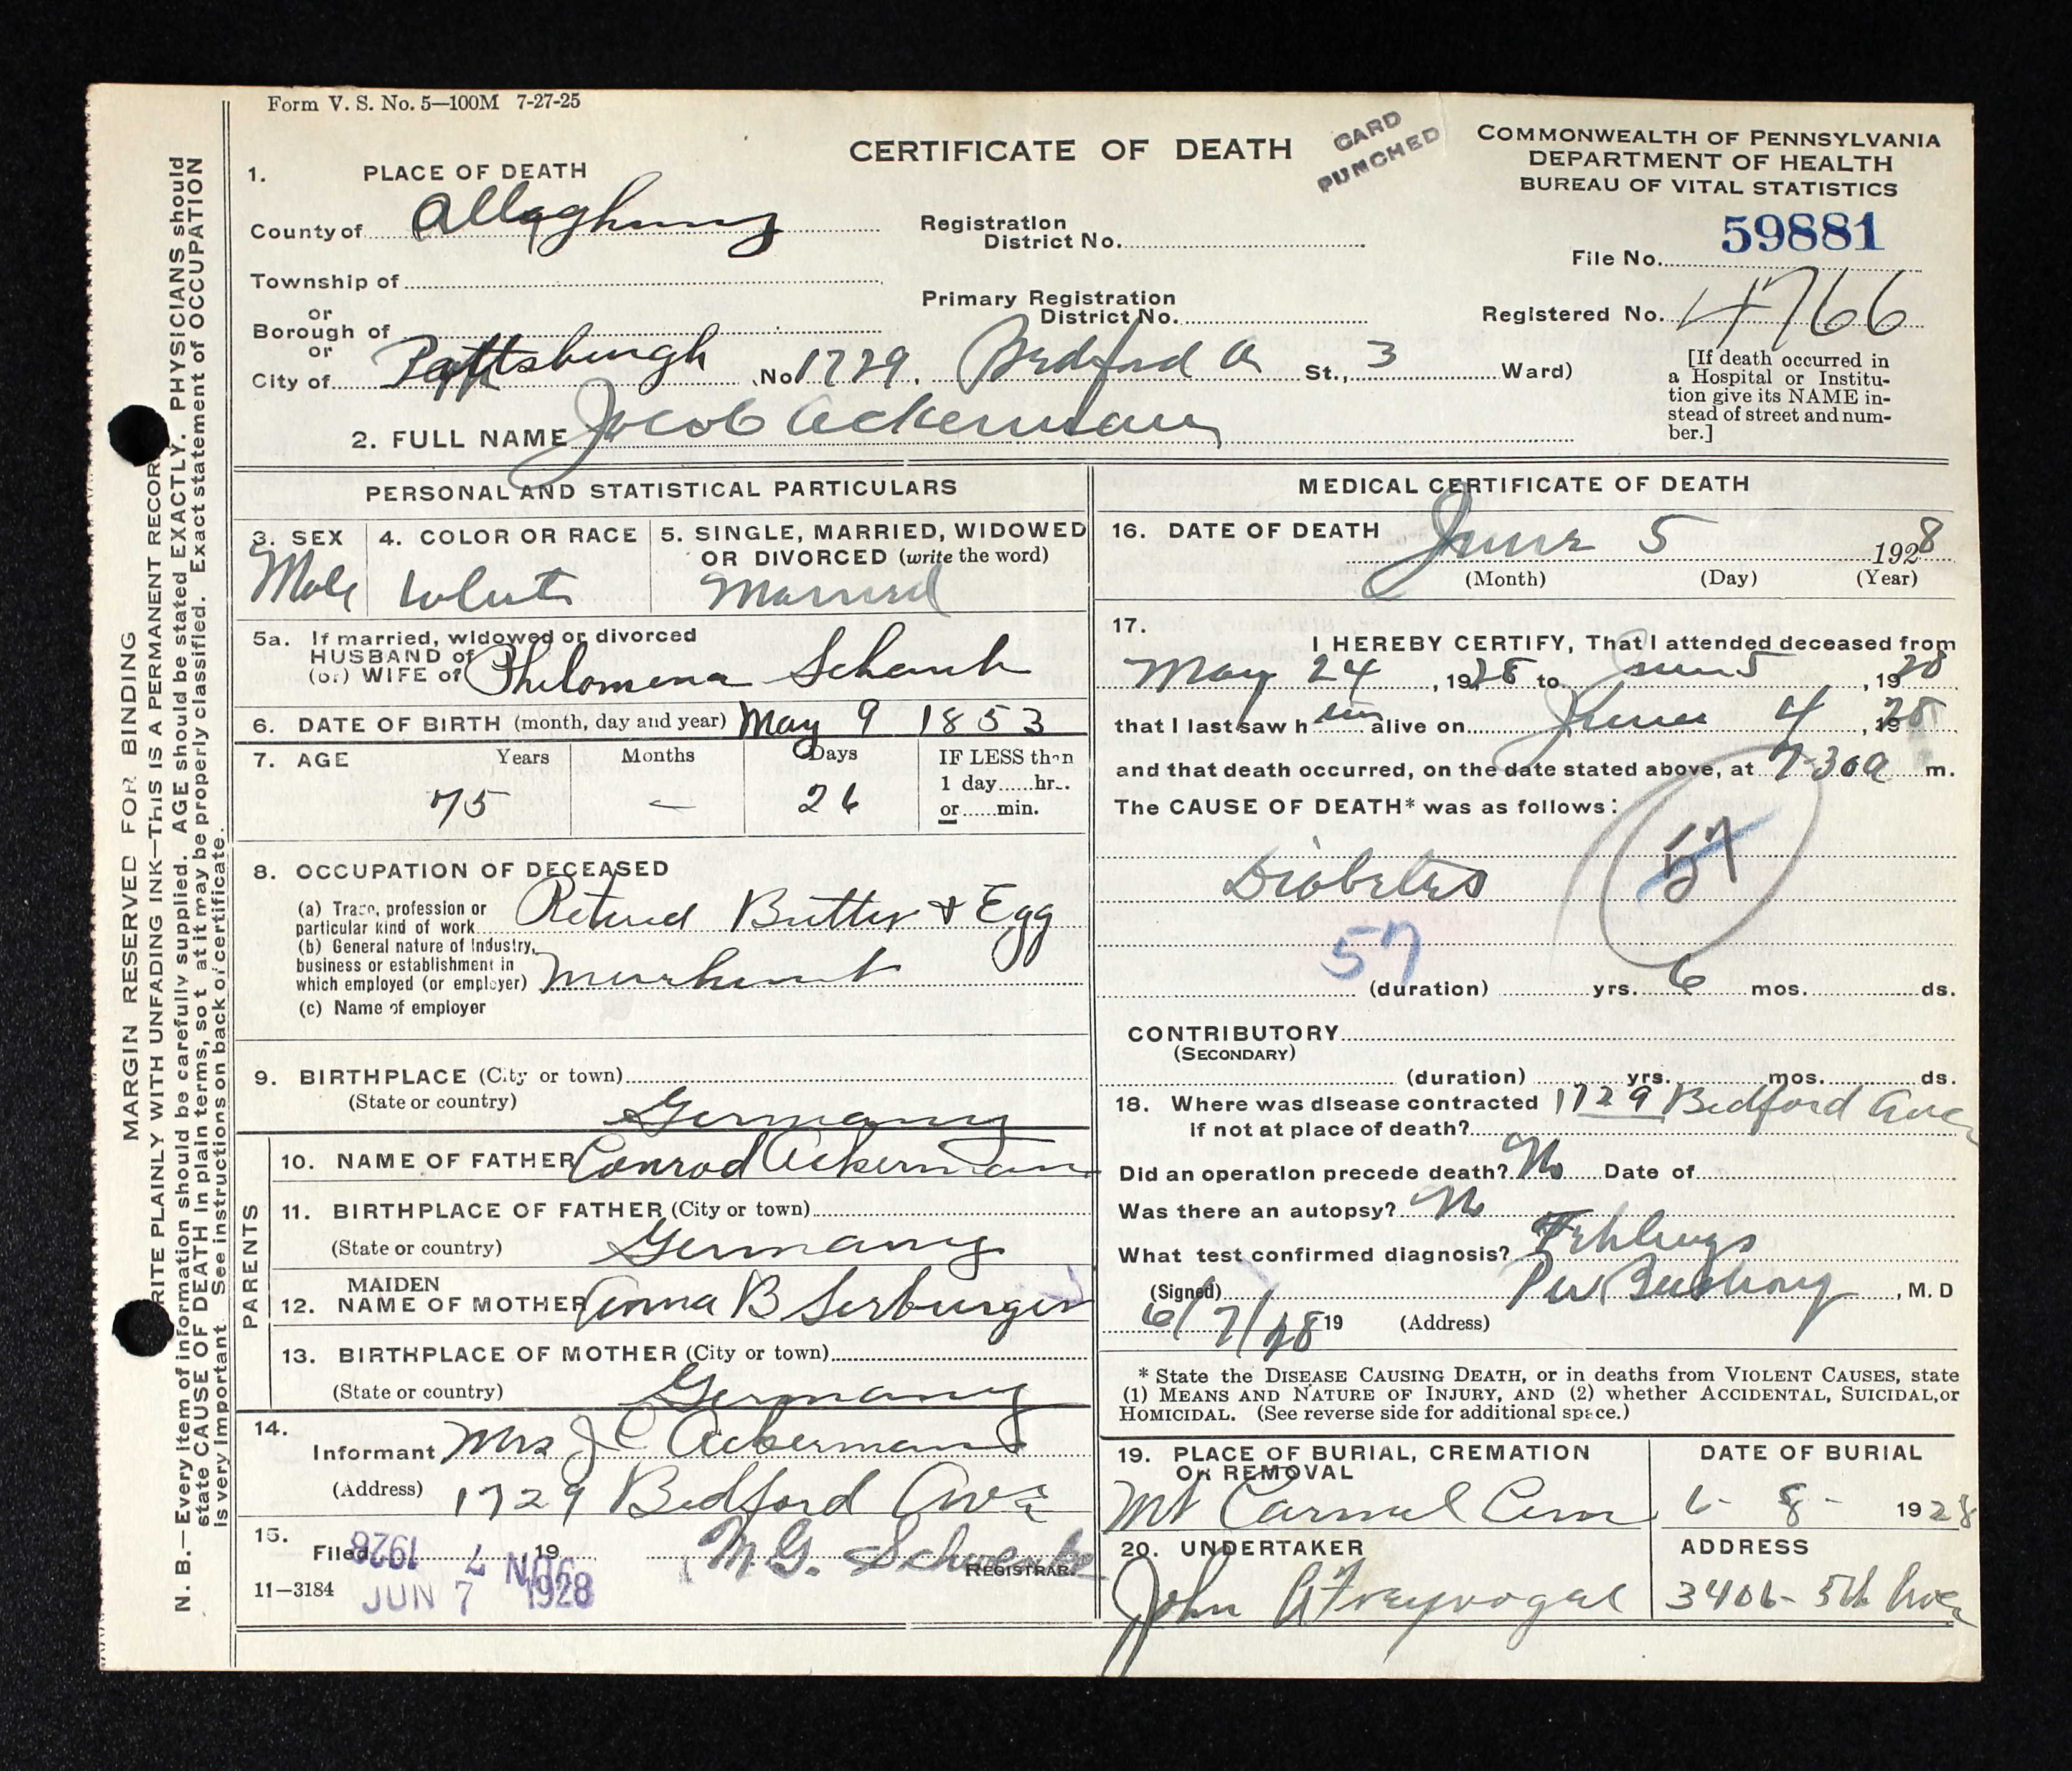 Form V. S. No. 5—100M 7-27-25
CERTIFICATE OF DEATH
CARD PUNCHED
COMMONWEALTH OF PENNSYLVANIA
DEPARTMENT OF HEALTH
BUREAU OF VITAL STATISTICS
1. PLACE OF DEATH
County of Allegheny
Registration District No.
File No. 59881
Township of
or
Borough of
or
Primary Registration District No.
Registered No. 4766
City of Pittsburgh No. 1729. Bedford A St., 3 Ward)
[If death occurred in
a Hospital or Institu-
tion give its NAME in-
stead of street and num-
ber.]
2. FULL NAME Jacob Ackerman
PERSONAL AND STATISTICAL PARTICULARS
3. SEX Male
4. COLOR OR RACE White
5. SINGLE, MARRIED, WIDOWED
OR DIVORCED (write the word)
Married
5a. If married, widowed or divorced
HUSBAND of
(or) WIFE of Philomena Schaub
6. DATE OF BIRTH (month, day and year) May 9 1853
7. AGE Years Months Days IF LESS than
1 day......hr..
or......min.
75 — 26
8. OCCUPATION OF DECEASED
(a) Trade, profession or
particular kind of work Retired Butter & Egg
(b) General nature of Industry,
business or establishment in
which employed (or employer) merchant
(c) Name of employer
9. BIRTHPLACE (City or town)
(State or country) Germany
PARENTS
10. NAME OF FATHER Conrad Ackerman
11. BIRTHPLACE OF FATHER (City or town)
(State or country) Germany
12. MAIDEN
NAME OF MOTHER Anna B Serburger
13. BIRTHPLACE OF MOTHER (City or town)
(State or country) Germany
14.
Informant Mrs J C Ackerman
(Address) 1729 Bedford Ave
15.
Filed JUN 7 1928, 19 M. G. Schwenke
REGISTRAR.
11—3184 JUN 7 1928
MEDICAL CERTIFICATE OF DEATH
16. DATE OF DEATH June 5 1928
(Month) (Day) (Year)
17.
I HEREBY CERTIFY, That I attended deceased from
May 24, 1928 to June 5, 1928
that I last saw him alive on June 4, 1928
and that death occurred, on the date stated above, at 7-30 a m.
The CAUSE OF DEATH* was as follows:
57
Diabetes
57
(duration) yrs. 6 mos. ds.
CONTRIBUTORY
(SECONDARY)
(duration) yrs. mos. ds.
18. Where was disease contracted 1729 Bedford Ave
if not at place of death?
Did an operation precede death? No Date of
Was there an autopsy? No
What test confirmed diagnosis? Fehlings
(Signed) P W Bushong, M. D
6/7/28 19 (Address)
* State the DISEASE CAUSING DEATH, or in deaths from VIOLENT CAUSES, state
(1) MEANS AND NATURE OF INJURY, AND (2) whether ACCIDENTAL, SUICIDAL, or
HOMICIDAL. (See reverse side for additional space.)
19. PLACE OF BURIAL, CREMATION
OR REMOVAL
Mt Carmel Cem
DATE OF BURIAL
6- 8- 1928
20. UNDERTAKER
John A Freyvogel
ADDRESS
3406- 5th Ave
MARGIN RESERVED FOR BINDING
WRITE PLAINLY WITH UNFADING INK—THIS IS A PERMANENT RECORD
N. B.—Every item of information should be carefully supplied. AGE should be stated EXACTLY. PHYSICIANS should
state CAUSE OF DEATH in plain terms, so that it may be properly classified. Exact statement of OCCUPATION
is very important. See instructions on back of certificate.